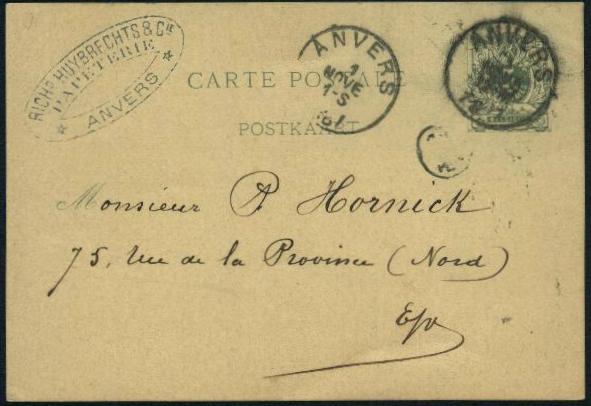 RICHD HUYBRECHTS & CIE
PAPETERIE
ANVERS
CARTE POSTALE
POSTKAART
ANVERS
1
NOVE
1-S
ANVERS
Monsieur A Hornick
75, rue de la Province (Nord)
E/V